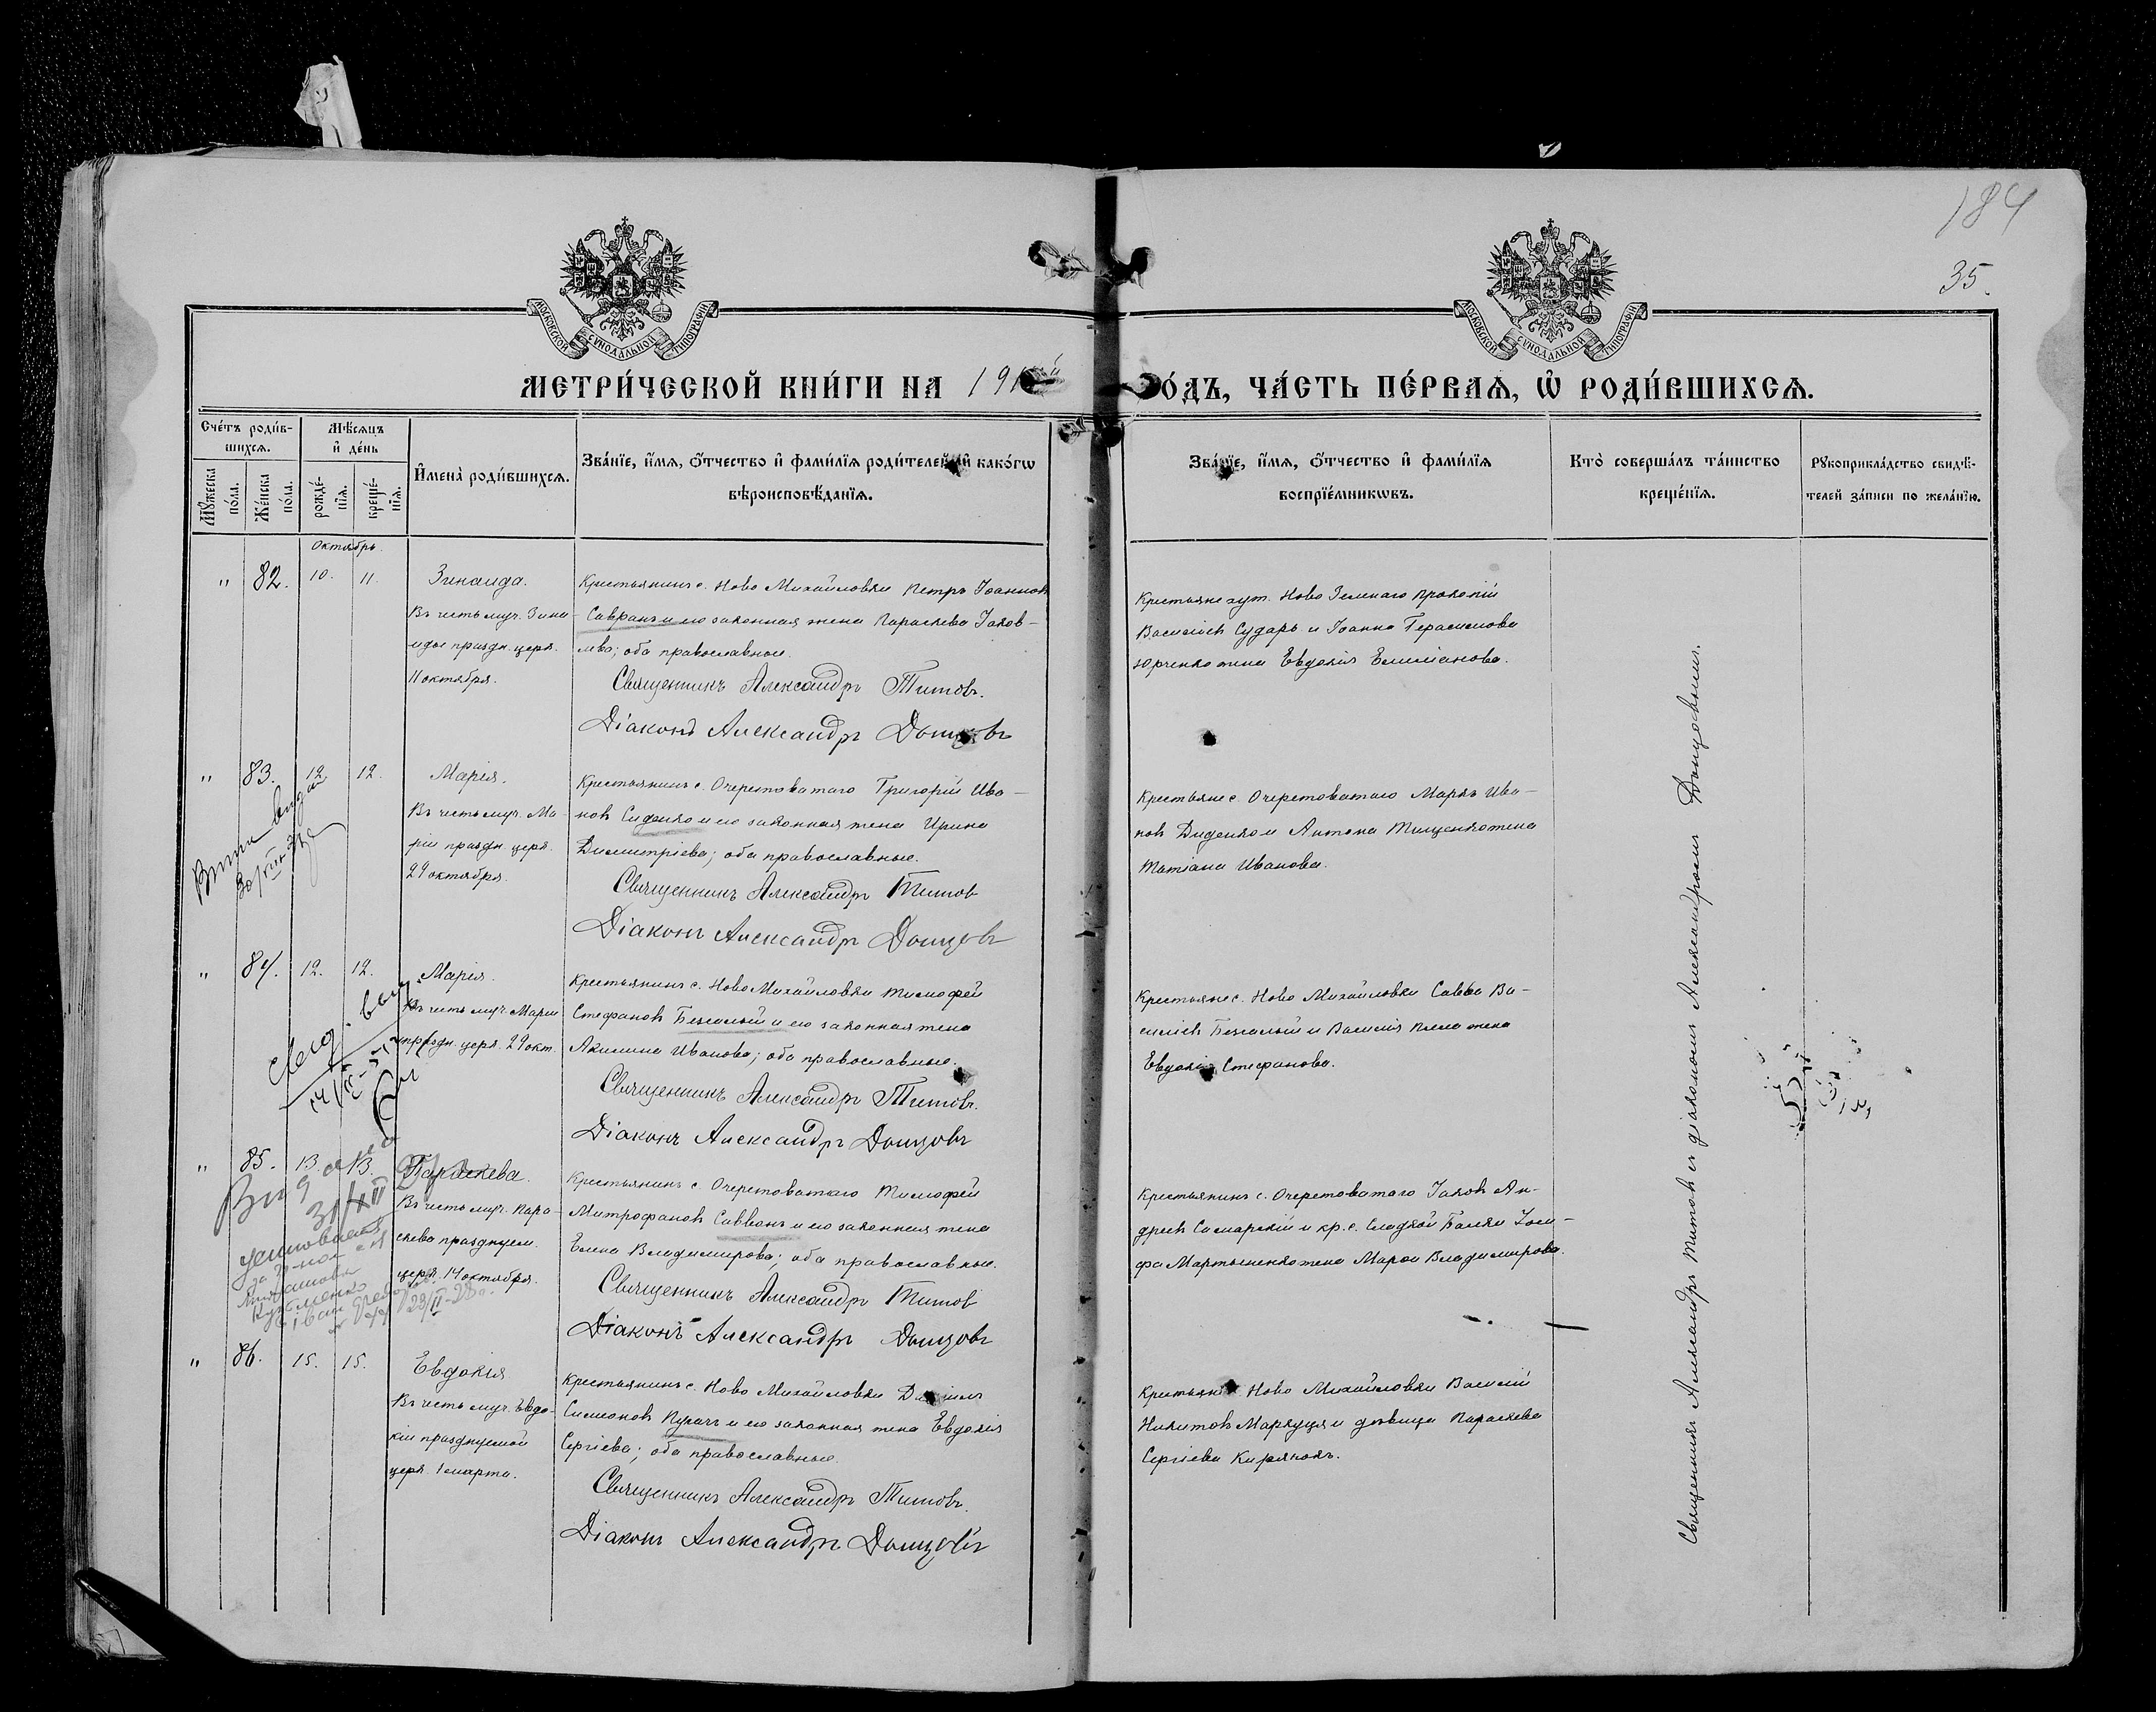 184
35.
МОСКОВСКОЙ СѴНОДАЛЬНОЙ ТИПОГРАФІИ
МОСКОВСКОЙ СѴНОДАЛЬНОЙ ТИПОГРАФІИ
МЕТРИ́ЧЕСКОЙ КНИ́ГИ НА 191
О́ДЪ, ЧА́СТЬ ПЕ́РВАѦ, Ѡ҆ РОДИ́ВШИХСѦ.
Сче́тъ роди́в-
шихсѧ.
Мѣ́сѧцъ
и҆ де́нь
Мꙋ́жеска
по́ла.
Же́нска
по́ла.
рожде́-
нїѧ.
креще́-
нїѧ.
И҆мена̀ роди́вшихсѧ.
Зва́нїе, и҆́мѧ, ѻ҆́тчество и҆ фами́лїѧ роди́телей, и҆ како́гѡ
вѣроисповѣ́данїѧ.
Зва́нїе, и҆́мѧ, ѻ҆́тчество и҆ фами́лїѧ
воспрїе́мникѡвъ.
Кто̀ соверша́лъ та́инство
креще́нїѧ.
Рꙋкоприкла́дство свидѣ́-
телей за́писи по жела́нїю.
Октябрь.
" 82. 10. 11. Зинаида.
Въ честь муч. Зина-
иды праздн. церк.
11 октября.
Крестьянинъ с. Ново Михайловки Петръ Іоанновъ
Савранъ и его законная жена Параскева Іаков-
лева; оба православные.
Священникъ Александръ Титовъ.
Діаконъ Александръ Донцовъ
Крестьяне хут. Ново Зеленаго Прокопій
Василіевъ Сударь и Іоанна Герасимова
Юрченко жена Евдокія Емиліанова.
" 83. 12. 12. Марія.
Въ честь муч. Ма-
ріи праздн. церк.
29 октября.
Крестьянинъ с. Очеретоватаго Григорій Ива-
новъ Сиденко и его законная жена Ирина
Димитріева; оба православные.
Священникъ Александръ Титов
Діаконъ Александръ Донцовъ
Крестьяне с. Очеретоватаго Маркъ Ива-
новъ Диденко и Антона Тищенко жена
Татіана Иванова.
" 84. 12. 12. Марія.
Въ честь муч. Маріи
праздн. церк. 29 окт.
Крестьянинъ с. Ново Михайловки Тимофей
Стефановъ Безсалый и его законная жена
Акилина Иванова; оба православные.
Священникъ Александръ Титовъ.
Діаконъ Александръ Донцовъ
Крестьяне с. Ново Михайловки Савва Ва-
силіевъ Безсалый и Василія жена
Евдокія Стефанова.
" 85. 13. 13. Параскева.
Въ честь муч. Пара-
скева празднуем.
церк. 14 октября.
Крестьянинъ с. Очеретоватаго Тимофей
Митрофановъ Саввонъ и его законная жена
Елена Владимирова; оба православные.
Священникъ Александръ Титов
Діаконъ Александръ Донцовъ
Крестьянинъ с. Очеретоватаго Іаковъ Ан-
дреевъ Самарскій и кр. с. Сладкой Балки Іоси-
фа Мартыненко жена Марѳа Владимирова.
" 86. 15. 15. Евдокія
Въ честь муч. Евдо-
кіи празднуемой
церк. 1 марта.
Крестьянинъ с. Ново Михайловки Даніилъ
Симеоновъ Пугачъ и его законная жена Евдокія
Сергіева; оба православные.
Священникъ Александръ Титовъ.
Діаконъ Александръ Донцовъ
Ново Михайловки Василій
Никитовъ Маркуця и дѣвица Параскева
Сергіева Кирпонь.
Священникъ Александръ Титовъ съ діакономъ Александромъ Донцовымъ.